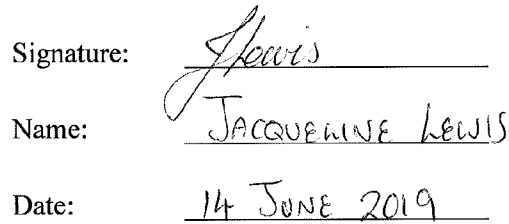 Signature: JLewis
Name: JACQUELINE LEWIS
Date: 14 JUNE 2019